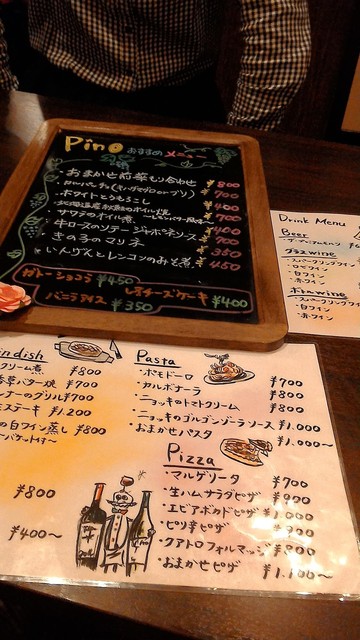 Pino おすすめ メニュー
おまかせ前菜もり合わせ ¥800
¥700
ホワイトとうもろこし ¥400
¥700
サワラのオイル煮 ¥400
牛ロースのソテー ジャポネソース ¥700
きのこのマリネ ¥350
いんげんとレンコンのみそ煮 ¥450
ガトーショコラ ¥450 レアチーズケーキ ¥400
バニラアイス ¥350
Drink Menu
Beer
グラスwine
スパークリングワイン
白ワイン
赤ワイン
ボトルwine
スパークリング
白ワイン
赤ワイン
ndish
クリーム煮 ¥800
草バター焼 ¥700
ナーのグリル ¥700
ステーキ ¥1.200
の白ワイン蒸し ¥800
バゲット付き
¥800
¥400〜
Pasta
・ポモドーロ ¥700
・カルボナーラ ¥800
・ニョッキのトマトクリーム ¥800
・ニョッキのゴルゴンゾーラソース ¥1.000
・おまかせパスタ ¥1.000〜
Pizza
・マルゲリータ ¥700
・生ハムサラダピザ ¥900
・エビアボカドピザ ¥1.000
・ピリ辛ピザ ¥900
・クアトロフォルマッジ ¥800
・おまかせピザ ¥1.100〜